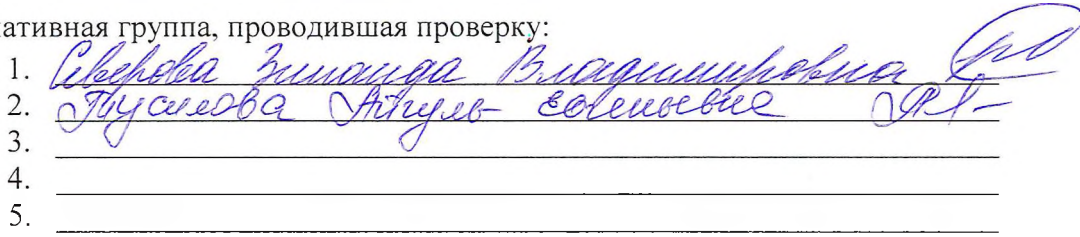 ативная группа, проводившая проверку:
1. Северова Зинаида Владимировна
2. Тусипова Айгуль
3.
4.
5.